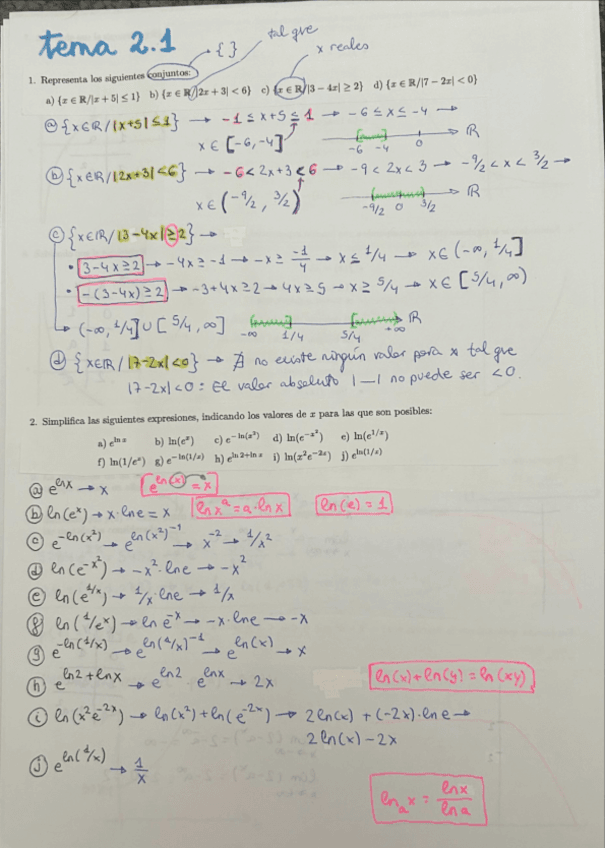 tema 2.1
{ }
tal que
x reales
1. Representa los siguientes conjuntos:
a) {x ∈ R/|x + 5| ≤ 1} b) {x ∈ R/|2x + 3| < 6} c) {x ∈ R/|3 − 4x| ≥ 2} d) {x ∈ R/|7 − 2x| < 0}
ⓐ {x∈R/ |x+5| ≤ 1} → -1 ≤ x+5 ≤ 1 → -6 ≤ x ≤ -4 →
x ∈ [-6, -4] -6 -4 0 R
ⓑ {x∈R/ |2x+3| < 6} → -6 < 2x+3 < 6 → -9 < 2x < 3 → -9/2 < x < 3/2 →
x∈ (-9/2, 3/2) -9/2 0 3/2 R
ⓒ {x∈R/ |3-4x| ≥ 2} →
• 3-4x ≥ 2 → -4x ≥ -1 → -x ≥ -1/4 → x ≤ 1/4 → x∈ (-∞, 1/4]
• -(3-4x) ≥ 2 → -3+4x ≥ 2 → 4x ≥ 5 → x ≥ 5/4 → x∈ [5/4, ∞)
→ (-∞, 1/4] ∪ [5/4, ∞] -∞ 1/4 5/4 +∞ R
ⓓ {x∈R/ |7-2x| < 0} → ∄ no existe ningún valor para x tal que
|7-2x| < 0 : El valor absoluto |—| no puede ser < 0.
2. Simplifica las siguientes expresiones, indicando los valores de x para las que son posibles:
a) e^{ln x} b) ln(e^x) c) e^{−ln(x²)} d) ln(e^{−x²}) e) ln(e^{1/x})
f) ln(1/e^x) g) e^{−ln(1/x)} h) e^{ln 2+ln x} i) ln(x²e^{−2x}) j) e^{ln(1/x)}
ⓐ e^{lnx} → x e^{ln(x)} = x
ⓑ ln(e^x) → x·lne = x ln x^a = a·ln x ln(e) = 1
ⓒ e^{-ln(x²)} → e^{ln(x²)^{-1}} → x^{-2} → 1/x²
ⓓ ln(e^{-x²}) → -x²·lne → -x²
ⓔ ln(e^{1/x}) → 1/x·lne → 1/x
ⓕ ln(1/e^x) → ln e^{-x} → -x·lne → -x
ⓖ e^{-ln(1/x)} → e^{ln(1/x)^{-1}} → e^{ln(x)} → x
ⓗ e^{ln2+lnx} → e^{ln2}·e^{lnx} → 2x ln(x)+ln(y) = ln(xy)
ⓘ ln(x²e^{-2x}) → ln(x²)+ln(e^{-2x}) → 2ln(x)+(-2x)·lne →
2ln(x)-2x
ⓙ e^{ln(1/x)} → 1/x
ln_a x = lnx/lna